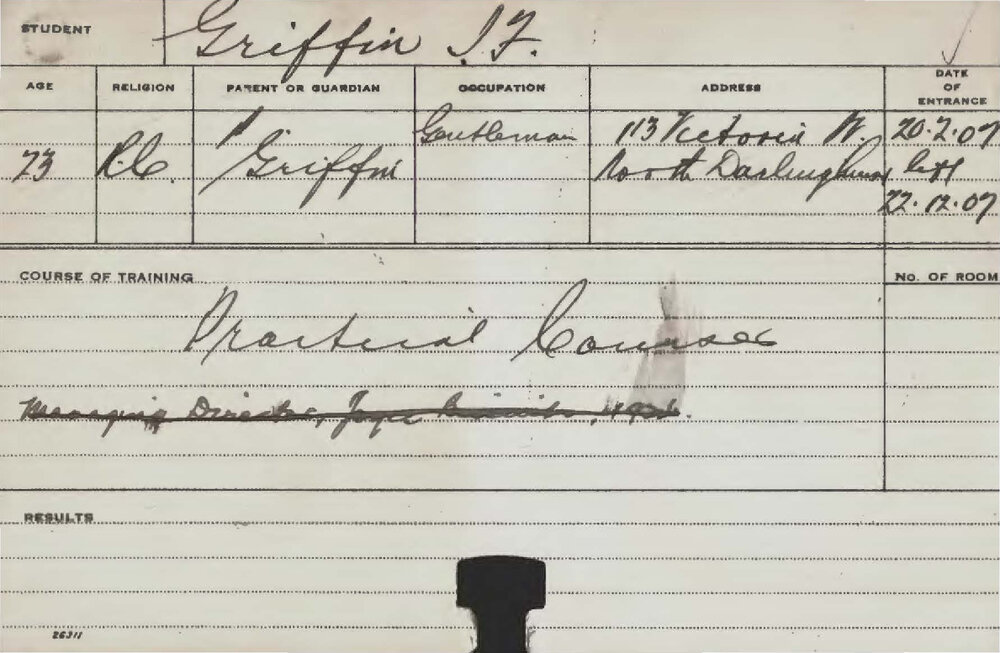 STUDENT Griffin J. F.
AGE RELIGION PARENT OR GUARDIAN OCCUPATION ADDRESS DATE OF ENTRANCE
Gentleman 113 Victoria 20.2.07
23 R.C. Griffin North Darlinghurst left
22.12.07
COURSE OF TRAINING No. OF ROOM
Practical Course
Managing Director,
RESULTS
26311